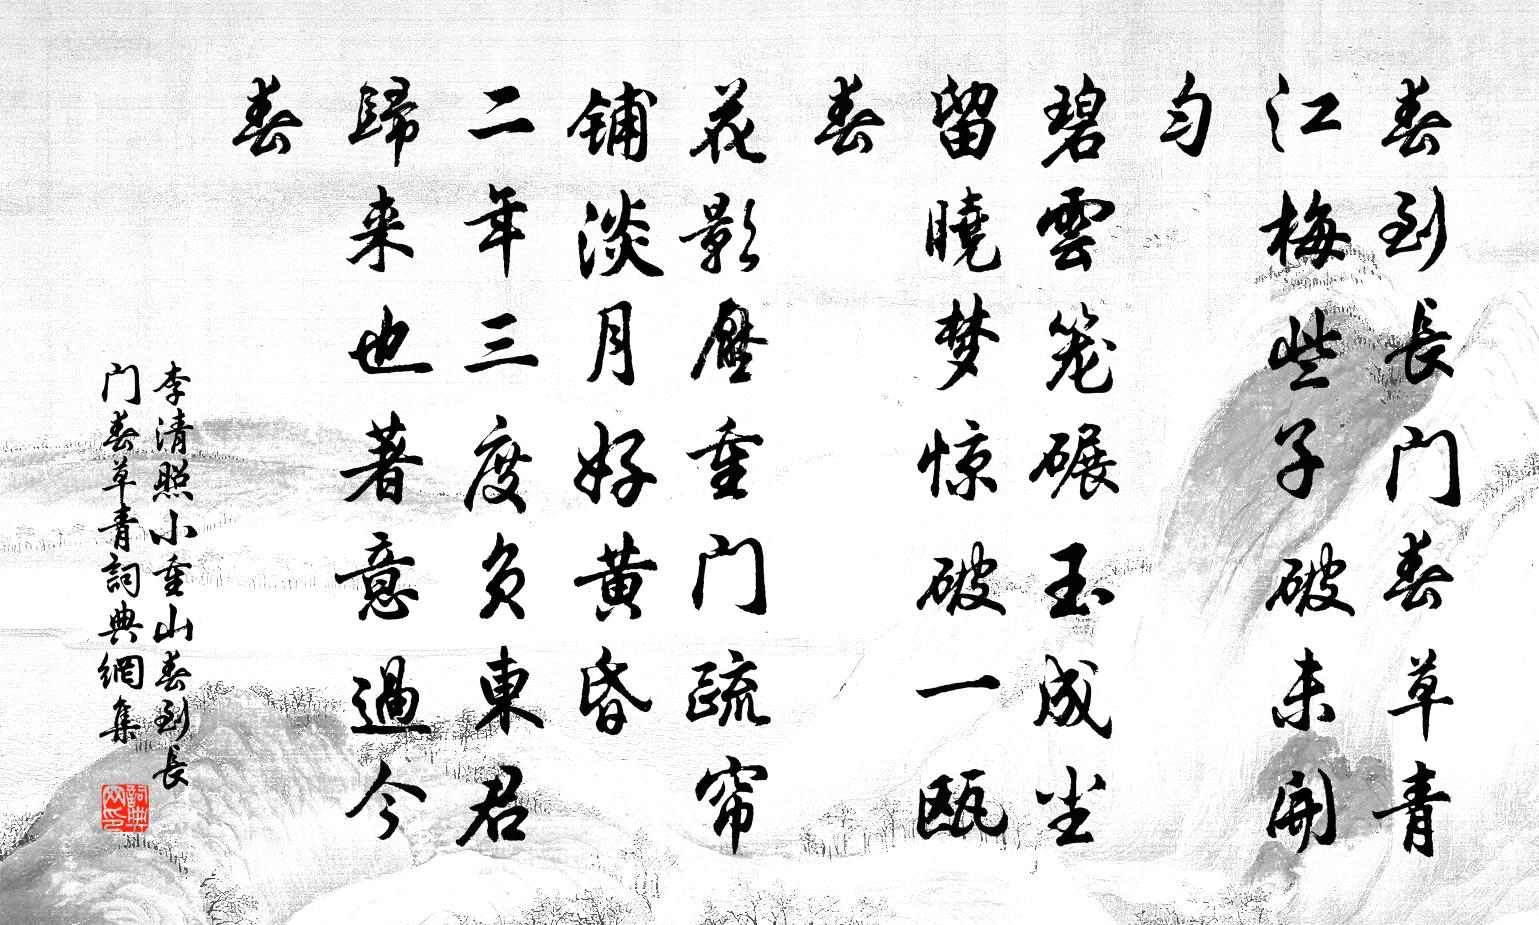 春到長门春草青
江梅些子破未開
匀
碧雲笼碾玉成尘
留曉梦惊破一瓯
春
花影壓重门疏帘
铺淡月好黄昏
二年三度负東君
歸来也著意過今
春
李清照小重山春到長
门春草青詞典網集
詞典网印